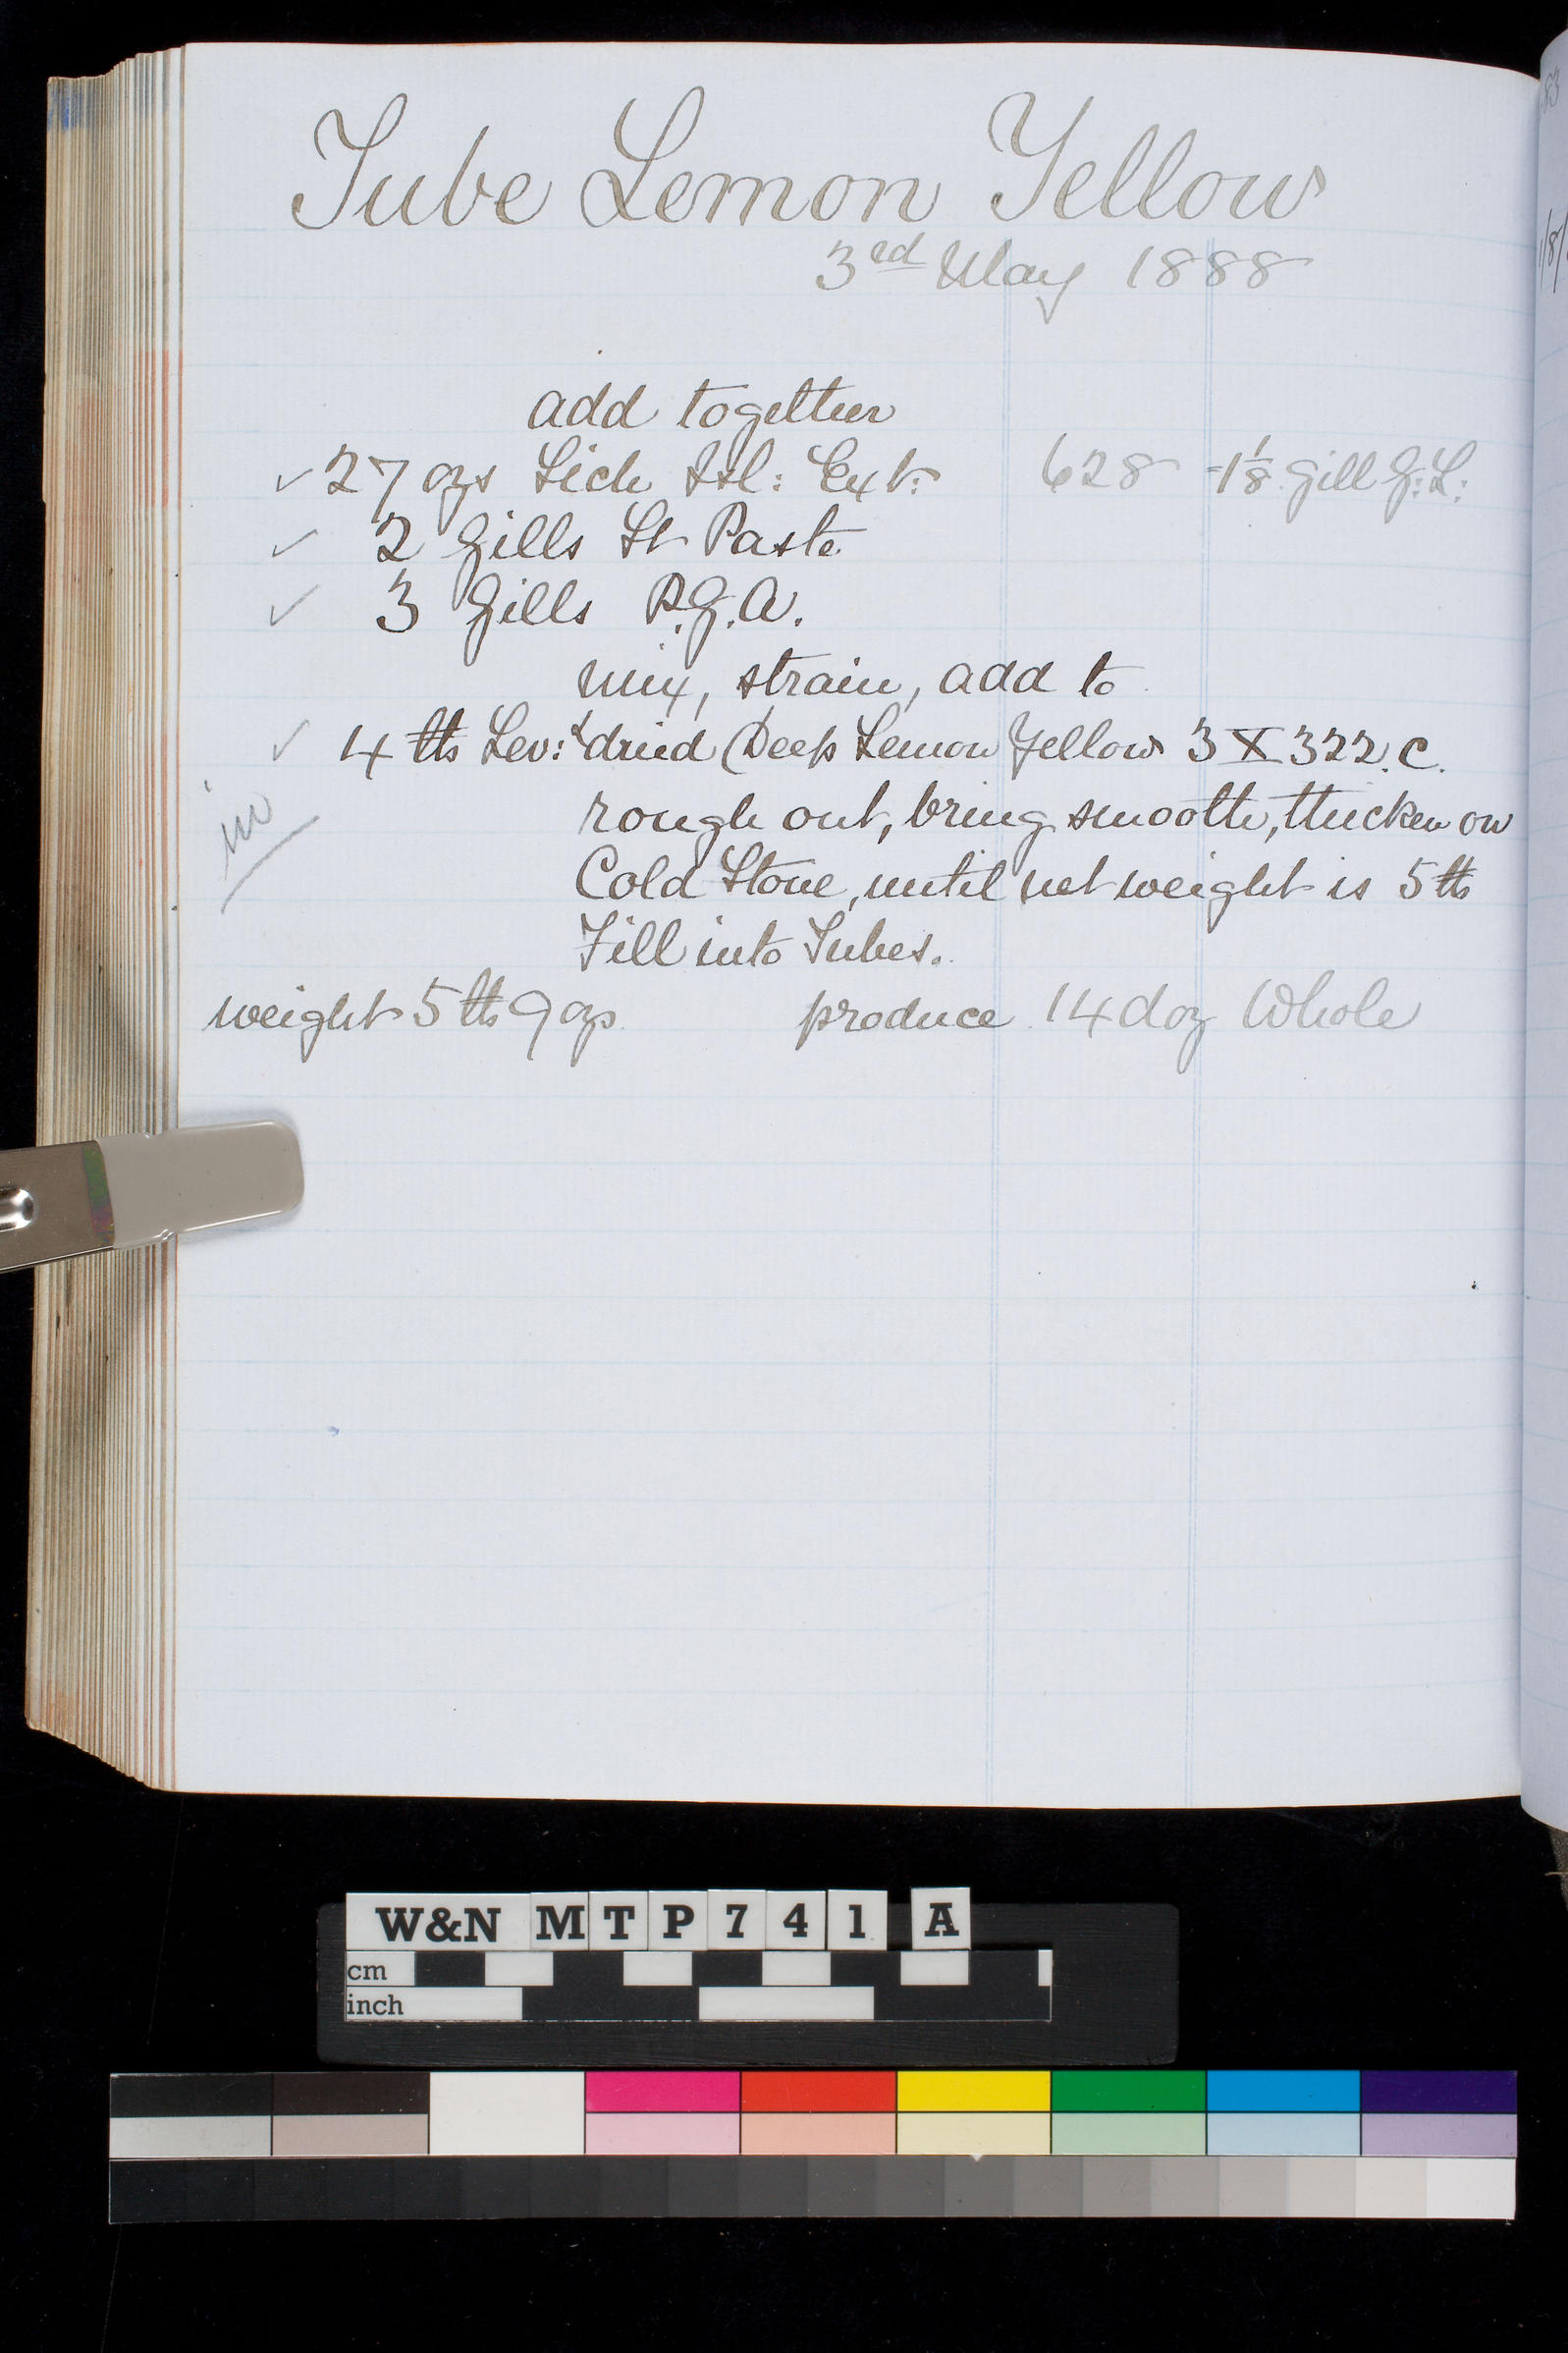 Tube Lemon Yellow
3rd May 1888
add together
✓ 27 ozs Lich Isl: Ext: 628 - 1 1/8 Gill G:L:
✓ 2 Gills St Paste
✓ 3 Gills P.G.A.
mix, strain, add to
✓ 4 lbs Lev: & dried Deep Lemon Yellow 3 X 322.C.
in
rough out, bring smooth, thicken on
Cold Stone, until net weight is 5 lbs
Fill into Tubes.
weight 5 lbs 9 ozs produce 14 doz Whole
W&N MTP741 A
cm
inch